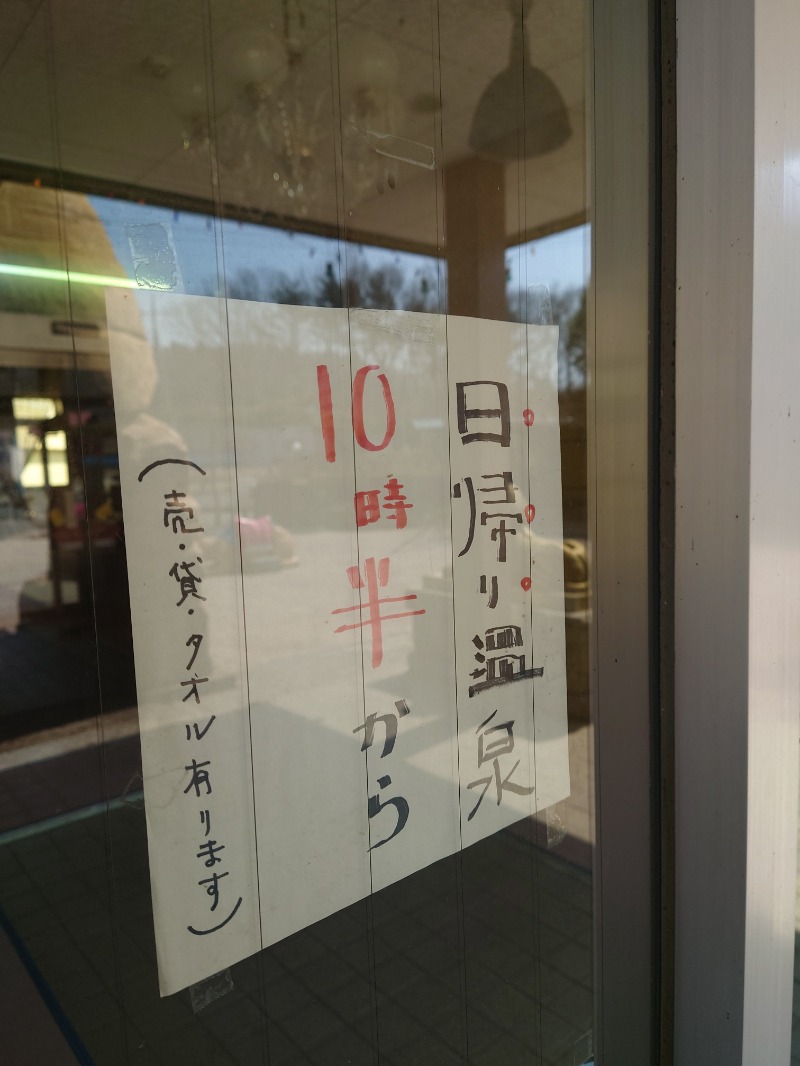 日帰り温泉
10時半から
（売・貸・タオル有ります）